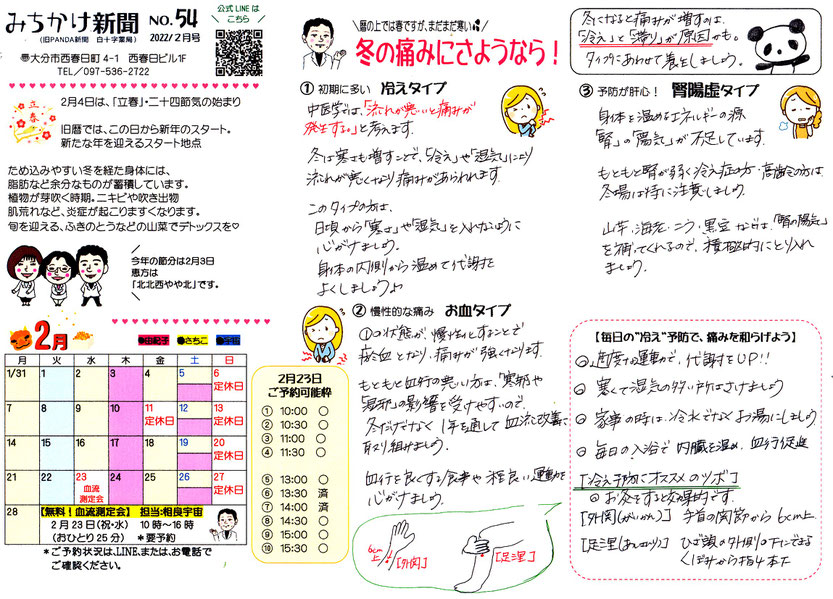 みちかけ新聞
NO.54
(旧PANDA新聞　白十字薬局)
2022/2月号
公式LINEは
こちら
大分市西春日町4-1　西春日ビル1F
TEL/097-536-2722
立春
2月4日は、「立春」・二十四節気の始まり
旧暦では、この日から新年のスタート。
新たな年を迎えるスタート地点
ため込みやすい冬を経た身体には、
脂肪など余分なものが蓄積しています。
植物が芽吹く時期。ニキビや吹き出物
肌荒れなど、炎症が起こりますくなります。
旬を迎える、ふきのとうなどの山菜でデトックスを♡
今年の節分は2月3日
恵方は
「北北西やや北」です。
2月
●由紀子
●さちこ
月 火 水 木 金 土 日
1/31 1 2 3 4 5 6
定休日
7 8 9 10 11 12 13
定休日 定休日
14 15 16 17 18 19 20
定休日
21 22 23 24 25 26 27
血流
測定会
定休日
28
【無料！血流測定会】 担当:相良宇宙
2月23日(祝・水)　10時～16時
(おひとり25分)　＊要予約
＊ご予約状況は、LINE、または、お電話で
ご確認ください。
2月23日
ご予約可能枠
① 10:00 ○
② 10:30 ○
③ 11:00 ○
④ 11:30 ○
⑤ 13:00 ○
⑥ 13:30 済
⑦ 14:00 済
⑧ 14:30 ○
⑨ 15:00 ○
⑩ 15:30 ○
暦の上では春ですが、まだまだ寒い
冬の痛みにさようなら！
冬になると痛みが増すのは、
「冷え」と「滞り」が原因かも。
タイプにあわせて養生しましょう。
① 初期に多い　冷えタイプ
中医学では、「流れが悪いと痛みが
発生する」と考えます。
冬は寒さも増すことで、「冷え」や「湿気」により
流れが悪くなり痛みがあらわれます。
このタイプの方は、
日頃から「寒さ」や「湿気」を入れないように
心がけましょう。
身体の内側から温めて代謝を
よくしましょう
② 慢性的な痛み　お血タイプ
①の状態が、慢性化することで
瘀血となり、痛みが強くなります。
もともと血行の悪い方は、「寒邪や
湿邪」の影響を受けやすいので、
冬だけでなく1年を通して血流を改善に
取り組みましょう。
血行を良くする食事や程良い運動を
心がけましょう。
6cm
上
[外関]
[足三里]
③ 予防が肝心！　腎陽虚タイプ
身体を温めるエネルギーの源
「腎」の「陽気」が不足しています。
もともと腎が弱く冷え症の方・高齢の方は、
冬場は特に注意しましょう。
山芋・海老・ニラ・黒豆などは、「腎の陽気」
を補ってくれるので、積極的にとり入れ
ましょう。
【毎日の“冷え”予防で、痛みを和らげよう】
適度な運動で、代謝をUP!!
寒くて湿気の多い所はさけましょう
家事の時は、冷水でなくお湯にしましょう
毎日の入浴で内臓を温め、血行促進
[冷え予防にオススメのツボ]
お灸をすると効果的です。
[外関(がいかん)]　手首の関節から6cm上
[足三里(あしさんり)]　ひざ頭の外側の下にできる
くぼみから指4本下